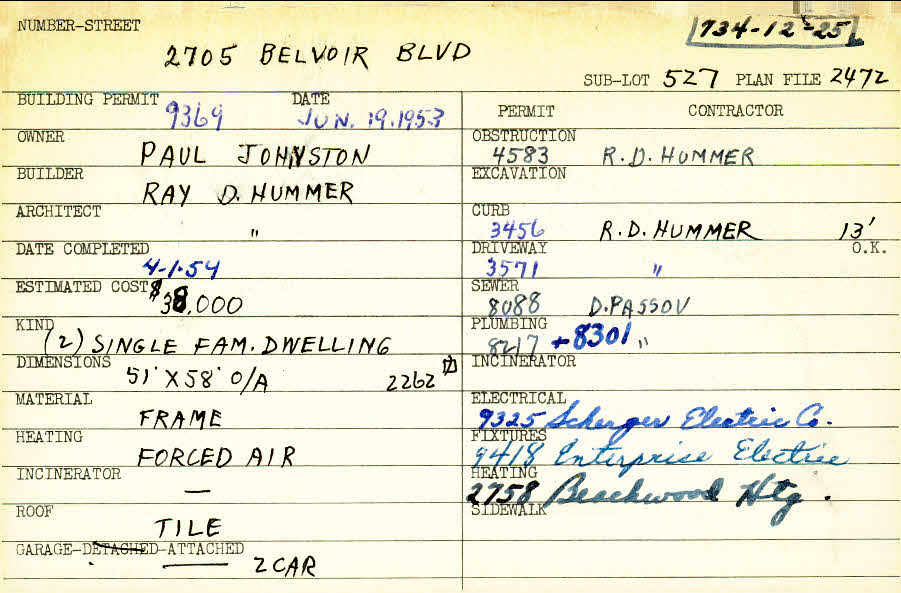 NUMBER-STREET
734-12-25
2705 BELVOIR BLVD
SUB-LOT 527 PLAN FILE 2472
BUILDING PERMIT 9369 DATE JUN. 19.1953
OWNER PAUL JOHNSTON
BUILDER RAY D. HUMMER
ARCHITECT "
DATE COMPLETED 4-1-54
ESTIMATED COST $38,000
KIND (2) SINGLE FAM. DWELLING
DIMENSIONS 51' X 58' O/A 2262
MATERIAL FRAME
HEATING FORCED AIR
INCINERATOR —
ROOF TILE
GARAGE-DETACHED-ATTACHED 2 CAR
PERMIT CONTRACTOR
OBSTRUCTION 4583 R.D. HUMMER
EXCAVATION
CURB 3456 R.D. HUMMER 13'
DRIVEWAY 3571 " O.K.
SEWER 8088 D. PASSOV
PLUMBING 8217 + 8301 "
INCINERATOR
ELECTRICAL 9325 Scherger Electric Co.
FIXTURES 9418 Enterprise Electric
HEATING 2758 Beachwood Htg.
SIDEWALK